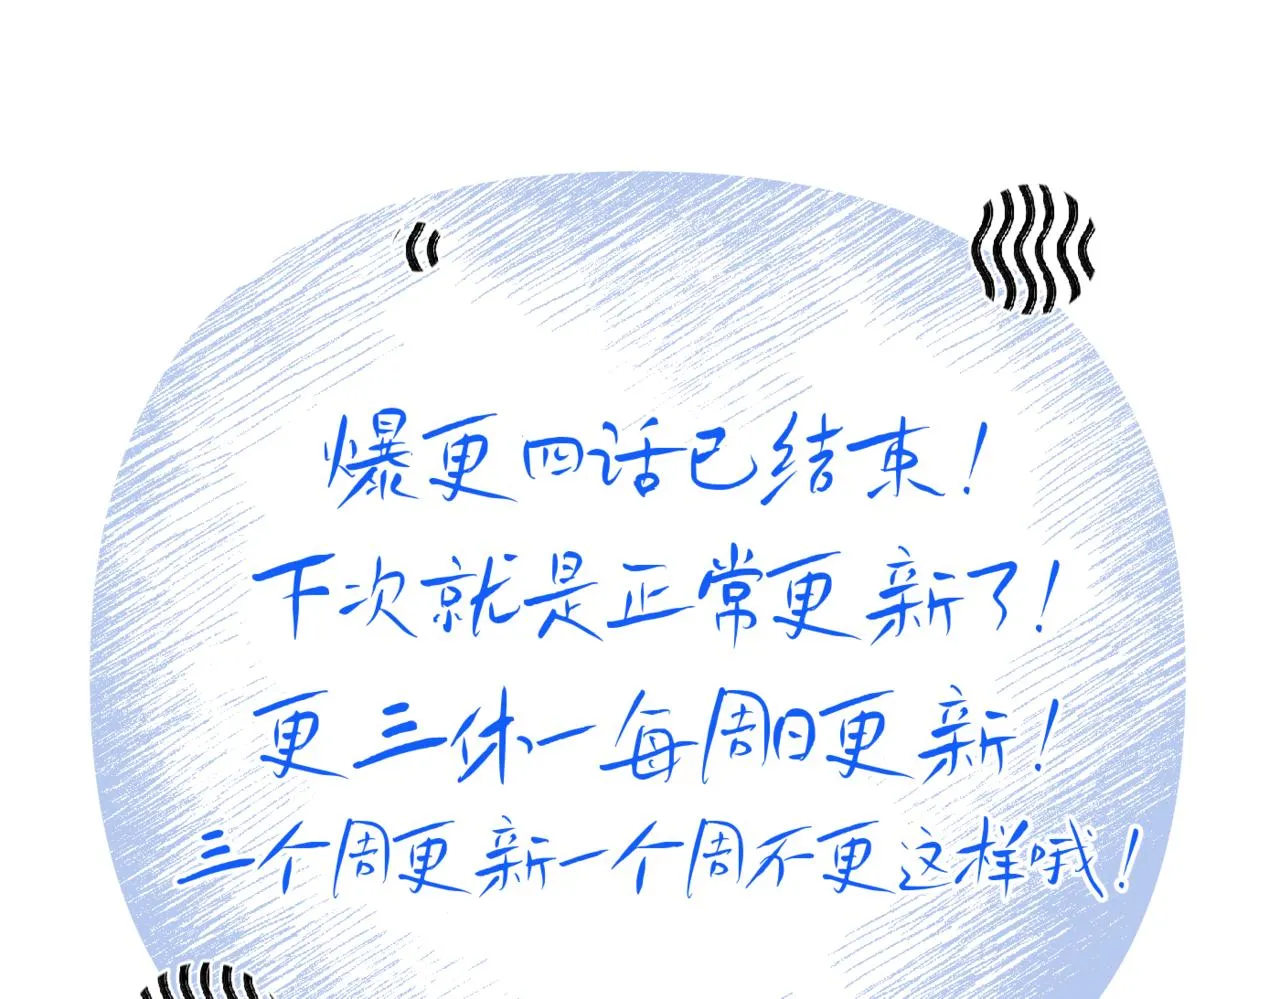 爆更四话已结束！
下次就是正常更新了！
更三休一每周日更新！
三个周更新一个周不更这样哦！